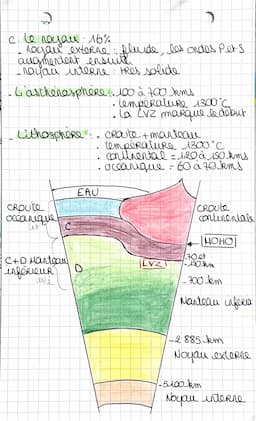 c. Le noyau : 16%
• noyau externe : fluide, les ondes P et S
augmentent ensuite
• noyau interne : très solide
• L'asthénosphère : • 100 à 700 kms
• température 1300°C
• la LVZ marque le début
Lithosphère : • croute + manteau
• température 1300°C
• continental = 120 à 150 kms
• océanique = 60 à 70 kms
EAU
croute
océanique
croute
continentale
C
MOHO
C + D Manteau
inférieur
D
LVZ
-70 et
-700 km
Manteau inférieu
-2 885 km
Noyau externe
-5100 km
Noyau interne